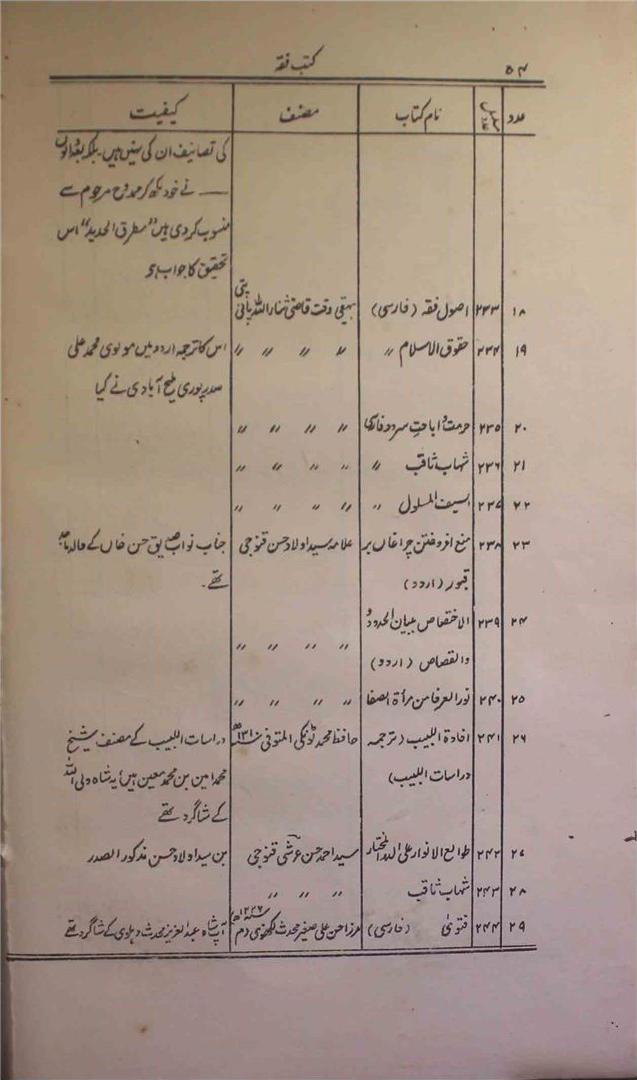 ۵۴
کتب فقہ
عدد
سلسل عدد
نام کتاب
مصنف
کیفیت
کی تصانیف ان کی نہیں ہیں۔ بلکہ
نے خود لکھ کر ممدوح مرحوم سے
منسوب کردی ہیں "مطرق الحدید" اس
تحقیق کا جواب ہے
۱۸ ۲۳۳ اصول فقہ (فارسی) بیہقی وقت قاضی ثناء اللہ پانی پتی
۱۹ ۲۳۴ حقوق الاسلام 〃 〃 〃 〃 〃 اس کا ترجمہ اردو میں مولوی محمد علی
صدرپوری ملیح آبادی نے کیا
۲۰ ۲۳۵ حرمت و اباحت سرود فارسی 〃 〃 〃 〃
۲۱ ۲۳۶ شہاب ثاقب 〃 〃 〃 〃 〃
۲۲ ۲۳۷ السیف المسلول 〃 〃 〃 〃 〃
۲۳ ۲۳۸ منع افروختن چراغاں بر علامہ سید اولاد حسن قنوجی جناب نواب صدیق حسن خاں کے والد ماجد
قبور (اردو) تھے۔
۲۴ ۲۳۹ الاختصاص ببیان الحدود و
والقصاص (اردو) 〃 〃 〃 〃
۲۵ ۲۴۰ نور العرفا من مرأۃ الصفا 〃 〃 〃 〃
۲۶ ۲۴۱ افادۃ اللبیب (ترجمہ حافظ محمد ٹونکی المتوفی ۱۳۱۰ھ دراسات اللبیب کے مصنف شیخ
دراسات اللبیب) محمد امین بن محمد معین ہیں یہ شاہ ولی اللہ
کے شاگرد تھے
۲۷ ۲۴۲ طوالع الانوار علی الدر المختار سید احمد حسن عرشی قنوجی بن سید اولاد حسن مذکور الصدر
۲۸ ۲۴۳ شہاب ثاقب 〃 〃 〃 〃
۲۹ ۲۴۴ فتویٰ (فارسی) مرزا حسن علی صغیر محدث لکھنوی دم ۱۲۲۶ھ آپ شاہ عبدالعزیز محدث دہلوی کے شاگرد تھے